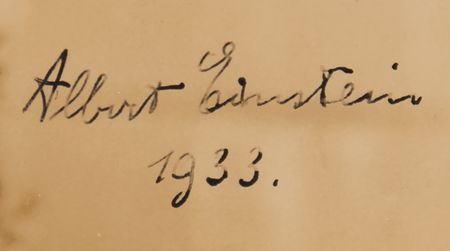 Albert Einstein
1933.